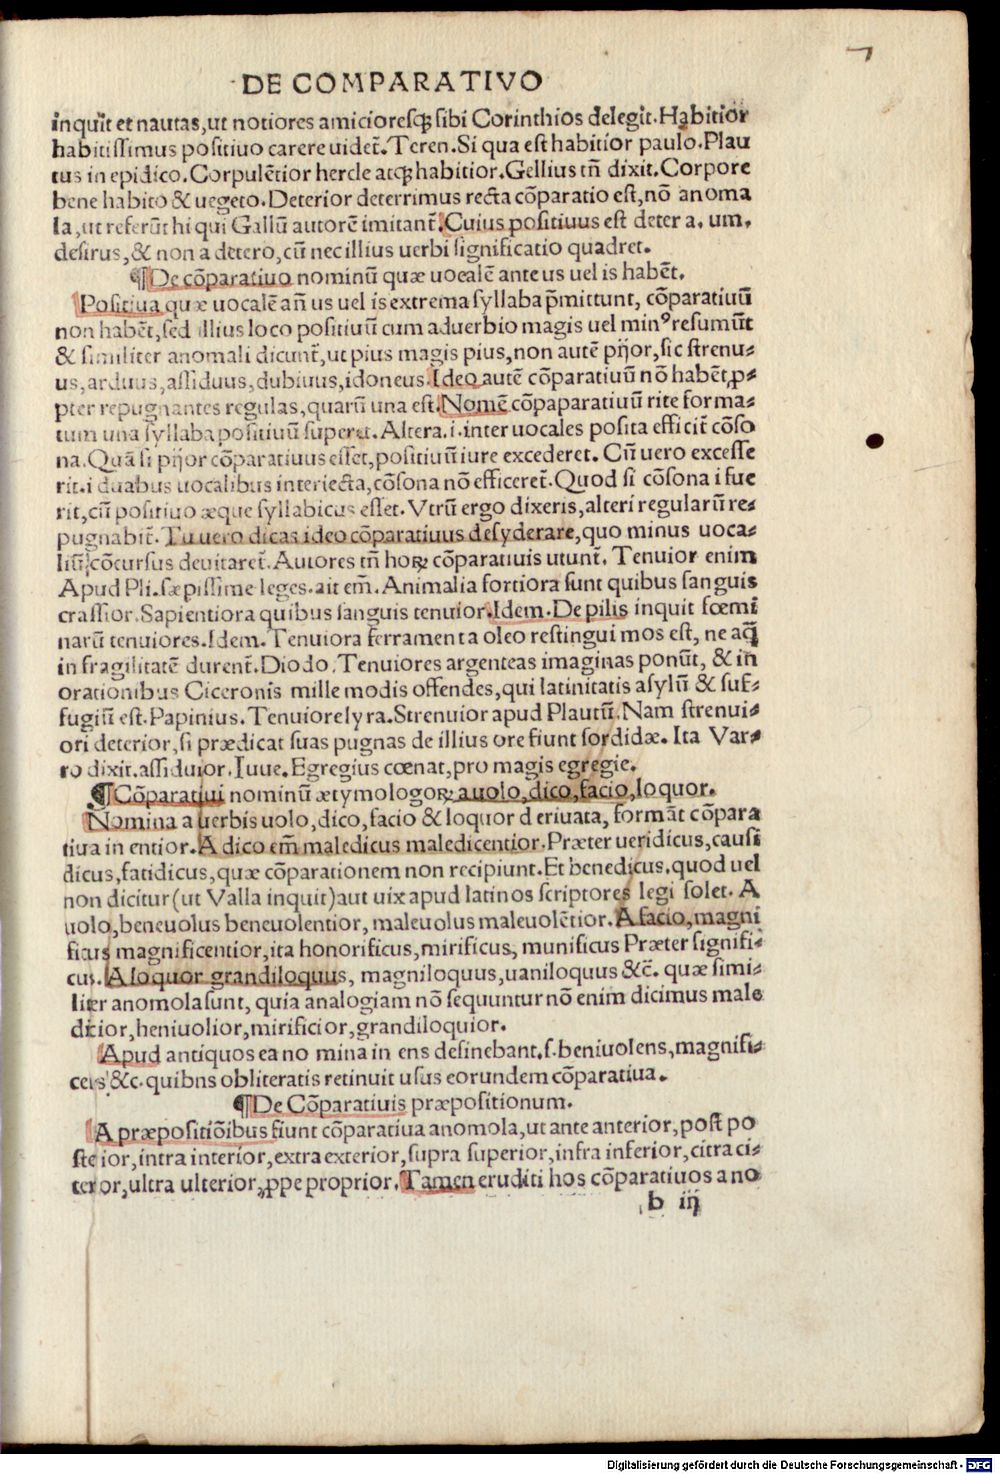 7
DE COMPARATIVO
inquit et nautas,ut notiores amicioresqȝ sibi Corinthios delegit.Habitior
habitissimus positiuo carere uidet̃.Teren.Si qua est habitior paulo.Plau
tus in epidico.Corpulẽtior hercle atqȝ habitior.Gellius tñ dixit.Corpore
bene habito & uegeto.Deterior deterrimus recta cõparatio est,nõ anoma
la,ut referũt hi qui Gallũ autorẽ imitant̃.Cuius positiuus est deter a. um.
desirus,& non a detero,cũ nec illius uerbi significatio quadret.
¶De cõparatiuo nominũ quæ uocalẽ ante us uel is habẽt.
Positiua quæ uocalẽ añ us uel is extrema syllaba p̃mittunt, cõparatiuũ
non habẽt,sed illius loco positiuũ cum aduerbio magis uel minꝰ resumũt
& similiter anomali dicunt̃,ut pius magis pius,non autẽ pijor,sic strenu⸗
us,arduus,assiduus,dubiuus,idoneus.Ideo autẽ cõparatiuũ nõ habẽt,ꝓ⸗
pter repugnantes regulas,quarũ una est.Nomẽ cõpaparatiuũ rite forma⸗
tum una syllaba positiuũ superet.Altera.i.inter uocales posita efficit̃ cõso
na.Quã si pijor cõparatiuus esset,positiuũ iure excederet. Cũ uero excesse
rit.i duabus uocalibus interiecta,cõsona nõ efficeret̃.Quod si cõsona i fue
rit,cũ positiuo æque syllabicus esset.Vtrũ ergo dixeris,alteri regularũ re⸗
pugnabit̃.Tu uero dicas ideo cõparatiuus desyderare,quo minus uoca⸗
liũ cõcursus deuitaret̃.Autores tñ horꝝ cõparatiuis utunt̃. Tenuior enim
Apud Pli.sæpissime leges.ait em̃.Animalia fortiora sunt quibus sanguis
crassior.Sapientiora quibus sanguis tenuior.Idem.De pilis inquit fœmi
narũ tenuiores.Idem.Tenuiora ferramenta oleo restingui mos est, ne aq̃
in fragilitatẽ durent̃.Diodo.Tenuiores argenteas imaginas ponũt, & in
orationibus Ciceronis mille modis offendes,qui latinitatis asylũ & suf⸗
fugiũ est.Papinius.Tenuiore lyra.Strenuior apud Plautũ.Nam strenui⸗
ori deterior,si prædicat suas pugnas de illius ore fiunt sordidæ. Ita Var⸗
ro dixit.assiduior.Iuue.Egregius cœnat,pro magis egregie.
¶Cõparatiui nominũ ætymologoꝝ a uolo,dico,facio,loquor.
Nomina a uerbis uolo,dico,facio & loquor deriuata, formãt cõpara
tiua in entior.A dico em̃ maledicus maledicentior.Præter ueridicus,causi
dicus,fatidicus,quæ cõparationem non recipiunt.Et benedicus.quod uel
non dicitur(ut Valla inquit)aut uix apud latinos scriptores legi solet. A
uolo,beneuolus beneuolentior, maleuolus maleuolẽtior. A facio,magni
ficus magnificentior,ita honorificus,mirificus, munificus Præter signifi⸗
cus.A loquor grandiloquus, magniloquus,uaniloquus &c̃. quæ simi⸗
liter anomola sunt, quia analogiam nõ sequuntur nõ enim dicimus male
dicior,heniuolior,mirificior,grandiloquior.
Apud antiquos ea no mina in ens desinebant.s.beniuolens,magnifi⸗
cens &c.quibns obliteratis retinuit usus eorundem cõparatiua.
¶De Cõparatiuis præpositionum.
A præpositiõibus fiunt cõparatiua anomola,ut ante anterior,post po
sterior,intra interior,extra exterior,supra superior,infra inferior,citra ci⸗
terior,ultra ulterior,ꝓpe proprior.Tamen eruditi hos cõparatiuos a no
b iij
Digitalisierung gefördert durch die Deutsche Forschungsgemeinschaft - DFG